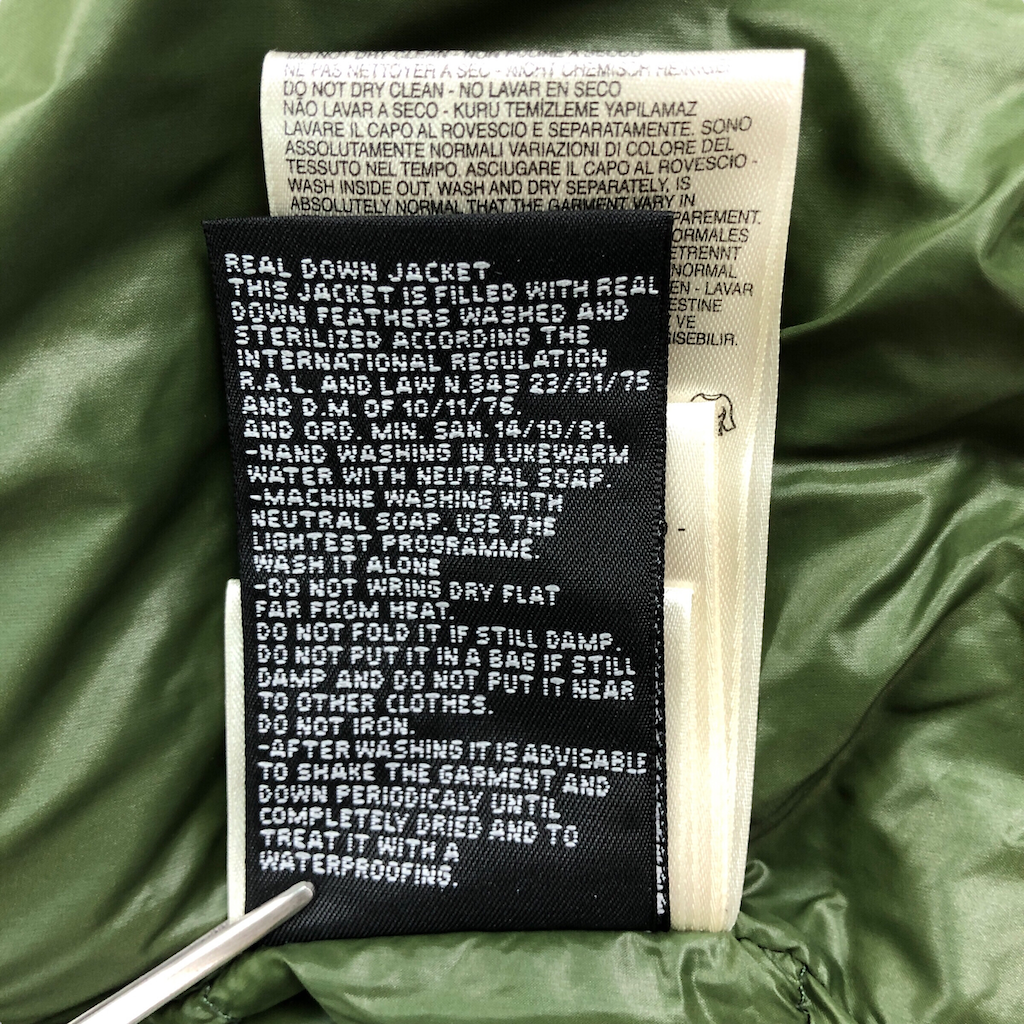 NE PAS NETTOYER A SEC - NICHT CHEMISCH
DO NOT DRY CLEAN - NO LAVAR EN SECO
NÃO LAVAR A SECO - KURU TEMİZLEME YAPILAMAZ
LAVARE IL CAPO AL ROVESCIO E SEPARATAMENTE. SONO
ASSOLUTAMENTE NORMALI VARIAZIONI DI COLORE DEL
TESSUTO NEL TEMPO. ASCIUGARE IL CAPO AL ROVESCIO -
WASH INSIDE OUT. WASH AND DRY SEPARATELY, IS
ABSOLUTELY NORMAL THAT THE GARMENT VARY IN
PAREMENT.
ORMALES
ETRENNT
NORMAL
EN - LAVAR
ESTINE
VE
ISEBILIR.
REAL DOWN JACKET
THIS JACKET IS FILLED WITH REAL
DOWN FEATHERS WASHED AND
STERILIZED ACCORDING THE
INTERNATIONAL REGULATION
R.A.L. AND LAW N.845 23/01/75
AND D.M. OF 10/11/76.
AND ORD. MIN. SAN. 14/10/81.
-HAND WASHING IN LUKEWARM
WATER WITH NEUTRAL SOAP.
-MACHINE WASHING WITH
NEUTRAL SOAP. USE THE
LIGHTEST PROGRAMME.
WASH IT ALONE
-DO NOT WRING DRY FLAT
FAR FROM HEAT.
DO NOT FOLD IT IF STILL DAMP.
DO NOT PUT IT IN A BAG IF STILL
DAMP AND DO NOT PUT IT NEAR
TO OTHER CLOTHES.
DO NOT IRON.
-AFTER WASHING IT IS ADVISABLE
TO SHAKE THE GARMENT AND
DOWN PERIODICALY UNTIL
COMPLETELY DRIED AND TO
TREAT IT WITH A
WATERPROOFING.